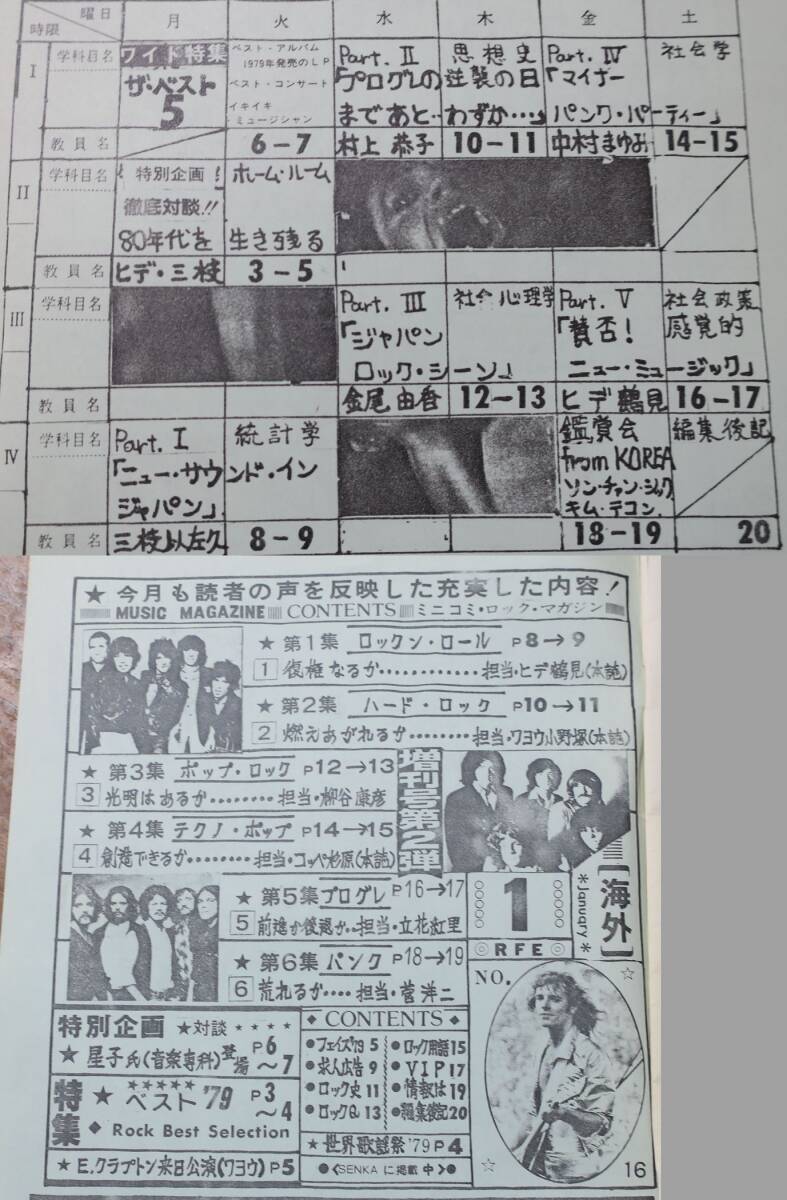 曜日 月 火 水 木 金 土
時限
I 学科目名 ワイド特集 ベスト・アルバム Part. II 思想史 Part. IV 社会学
1979年発売のLP
ザ・ベスト ベスト・コンサート 「プログレの逆襲の日 「マイナー
5 イキイキ・ミュージシャン まであと‥わずか…」 パンク・パーティー」
教員名 6-7 村上恭子 10-11 中村まゆみ 14-15
II 学科目名 特別企画! ホーム・ルーム
徹底対談!!
80年代を生き残る
教員名 ヒデ・三枝 3-5
III 学科目名 Part. III 社会心理学 Part. V 社会政策
「ジャパン 「賛否! 感覚的
ロック・シーン」 ニュー・ミュージック」
教員名 金尾由香 12-13 ヒデ鶴見 16-17
IV 学科目名 Part. I 統計学 鑑賞会 編集後記
「ニュー・サウンド・イン from KOREA
ジャパン」 ソン・チャン・シック
キム・テコン
教員名 三枝以左久 8-9 18-19 20
★今月も読者の声を反映した充実した内容!
MUSIC MAGAZINE CONTENTS ミニコミ・ロック・マガジン
★第1集 ロックン・ロール P8→9
1 復権なるか…………担当・ヒデ鶴見(本誌)
★第2集 ハード・ロック P10→11
2 燃えあがれるか………担当・ワヨウ小野塚(本誌)
★第3集 ポップ・ロック P12→13
3 光明はあるか………担当・柳谷康彦
★第4集 テクノ・ポップ P14→15
4 創造できるか………担当・コッペ杉原(本誌)
増刊号第2弾
★第5集 プログレ P16→17
5 前進か後退か‥担当・立花紅里
★第6集 パンク P18→19
6 荒れるか‥‥担当・菅洋二
1
*January*
[海外]
RFE
NO.
特別企画 ★対談 ★★★★
★星子氏(音楽専科)登場 P6〜7
特集 ★★★★★
★ベスト'79 P3〜4
◆ Rock Best Selection
★E.クラプトン来日公演(ワヨウ)P5
◆ CONTENTS ◆
●フェイズ'79 5 ●ロック用語15
●求人広告 9 ●VIP17
●ロック史 11 ●情報は19
●ロックQ 13 ●編集後記20
★世界歌謡祭'79 P4
●<SENKAに掲載中>●
16